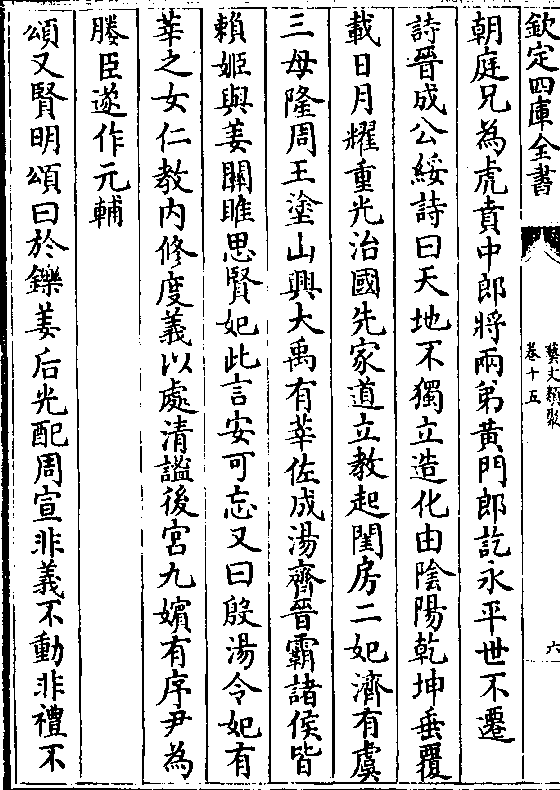 欽定四庫全書
藝文類聚
卷十五
六
朝庭兄為虎賁中郎將兩弟黃門郎訖永平世不遷
詩晉成公綏詩曰天地不獨立造化由陰陽乾坤垂覆
載日月耀重光治國先家道立教起閨房二妃濟有虞
三母隆周王塗山興大禹有莘佐成湯齊晉霸諸侯皆
賴姬與姜關雎思賢妃此言安可忘又曰殷湯令妃有
莘之女仁教內修度義以處清謐後宮九嬪有序尹為
媵臣遂作元輔
頌又賢明頌曰於鑠姜后光配周宣非義不動非禮不